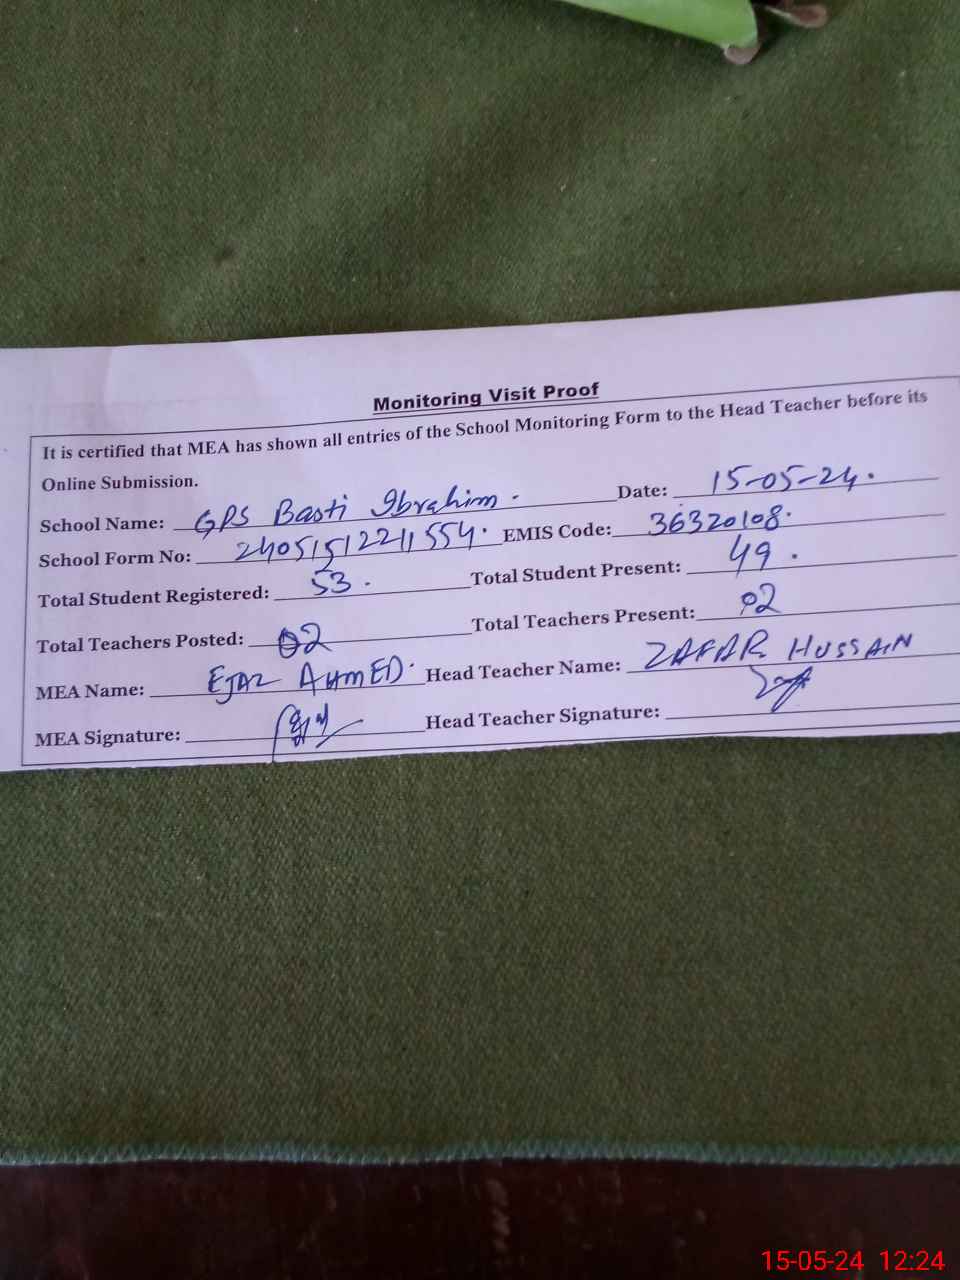 Monitoring Visit Proof
It is certified that MEA has shown all entries of the School Monitoring Form to the Head Teacher before its
Online Submission.
School Name: GPS Basti Ibrahim. Date: 15-05-24.
School Form No: 24051512211554. EMIS Code: 36320108.
Total Student Registered: 53. Total Student Present: 49.
Total Teachers Posted: 02 Total Teachers Present: 02
MEA Name: EJAZ AHMED. Head Teacher Name: ZAFAR HUSSAIN
MEA Signature: Head Teacher Signature:
15-05-24 12:24